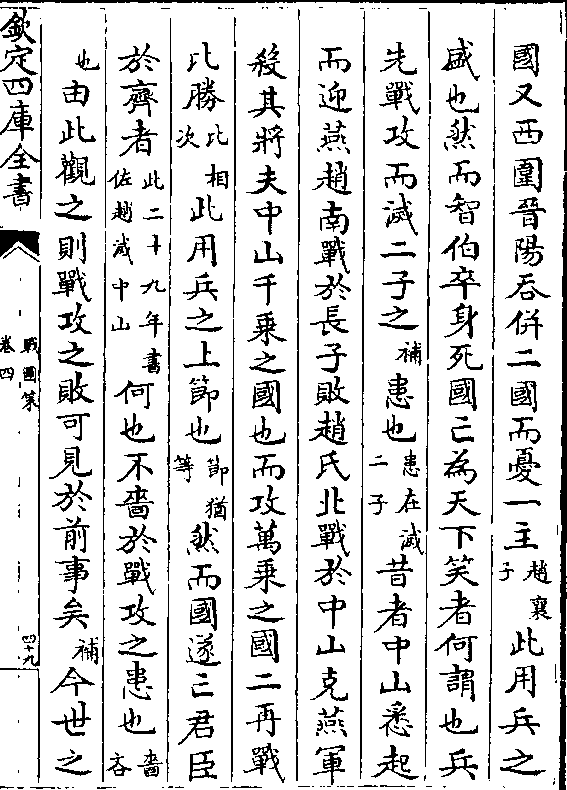 國又西圍晉陽吞併二國而憂一主趙襄子此用兵之
盛也然而智伯卒身死國亡為天下笑者何謂也兵
先戰攻而滅二子之補患也患在滅二子昔者中山悉起
而迎燕趙南戰於長子敗趙氏北戰於中山克燕軍
殺其將夫中山千乘之國也而攻萬乘之國二再戰
比勝比相次此用兵之上節也節猶等然而國遂亡君臣
於齊者此二十九年書佐趙滅中山何也不嗇於戰攻之患也嗇吝
也由此觀之則戰攻之敗可見於前事矣補今世之
欽定四庫全書
戰國策
卷四
四十九